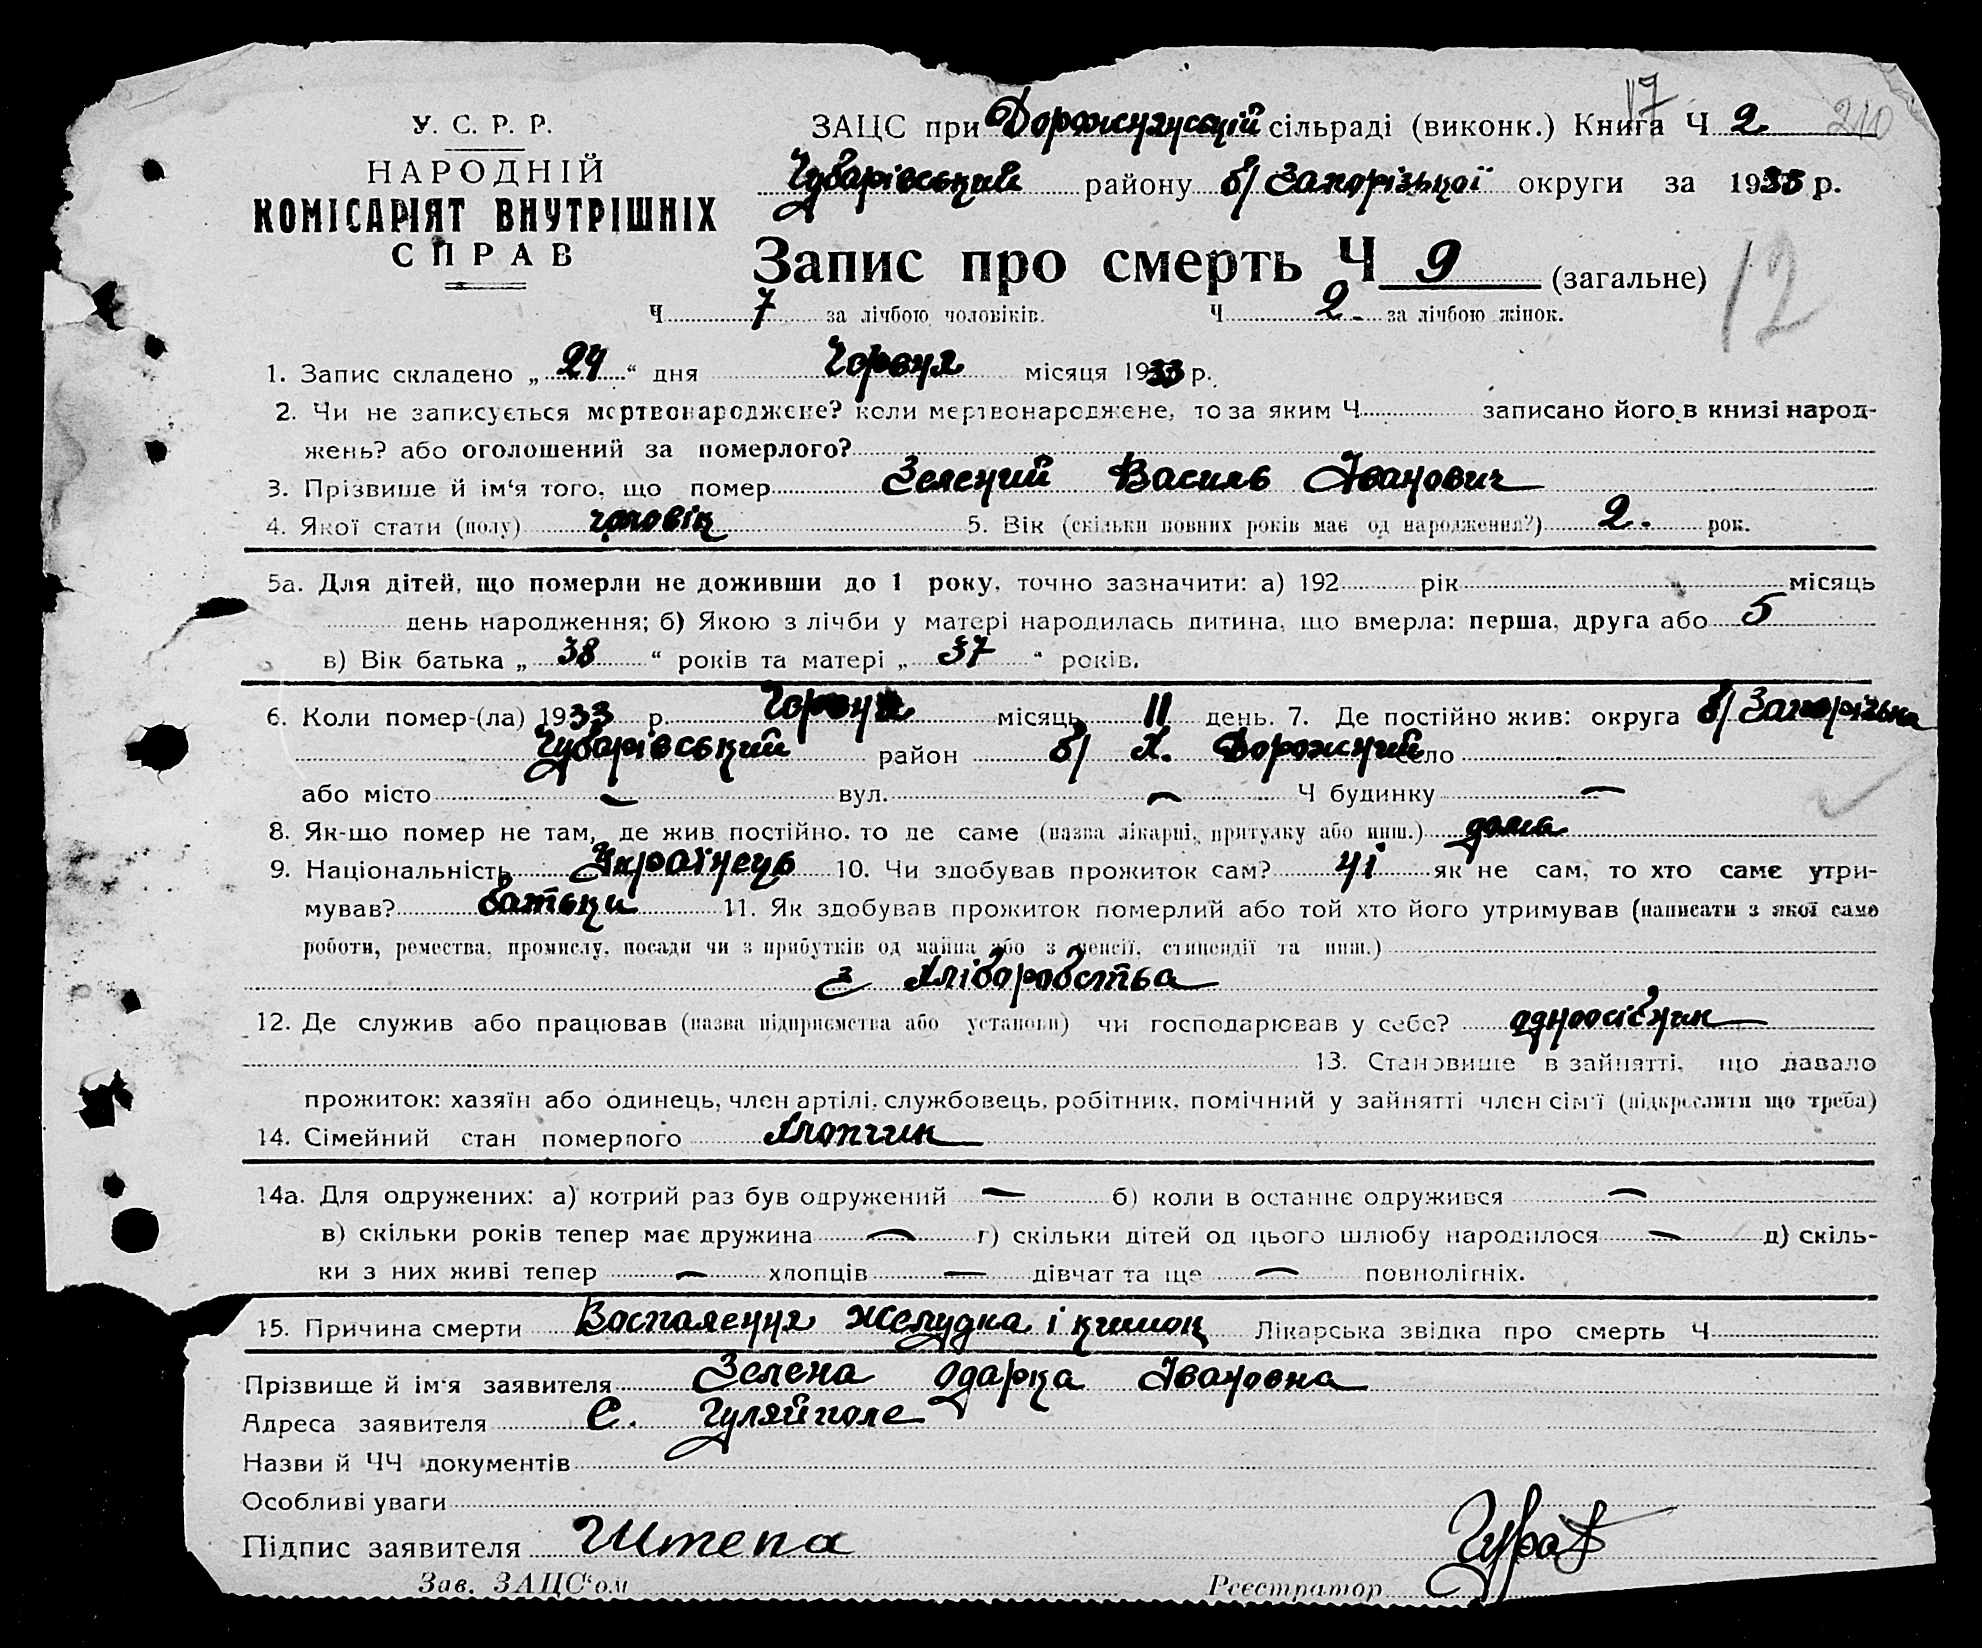 17
210
У. С. Р. Р.
НАРОДНІЙ
КОМІСАРІЯТ ВНУТРІШНІХ
СПРАВ
ЗАЦС при Дорожнянській сільраді (виконк.) Книга Ч 2
Чубарівський району б/Запорізької округи за 1933 р.
Запис про смерть Ч 9 (загальне)
12
Ч 7 за лічбою чоловіків. Ч 2. за лічбою жінок.
1. Запис складено „ 24 “ дня Червня місяця 1933 р.
2. Чи не записується мертвонароджене? коли мертвонароджене, то за яким Ч записано його в книзі народ-
жень? або оголошений за померлого?
3. Прізвище й ім‘я того, що помер Зелений Василь Іванович
4. Якої стати (полу) чоловік 5. Вік (скільки повних років має од народження?) 2. рок.
5а. Для дітей, що померли не доживши до 1 року, точно зазначити: а) 192 рік місяць
день народження; б) Якою з лічби у матері народилась дитина, що вмерла: перша, друга або 5
в) Вік батька „ 38 “ років та матері „ 37 “ років.
6. Коли помер-(ла) 1933 р. Червня місяць 11 день. 7. Де постійно жив: округа б/Запорізька
Чубарівський район б/ Х. Дорожний село
або місто — вул. — Ч будинку —
8. Як-що помер не там, де жив постійно, то де саме (назва лікарні, притулку або инш.) дома
9. Національність Українець 10. Чи здобував прожиток сам? ні як не сам, то хто саме утри-
мував? батьки 11. Як здобував прожиток померлий або той хто його утримував (написати з якої саме
роботи, ремества, промислу, посади чи з прибутків од майна або з пенсії, стипендії та инш.)
з хліборобства
12. Де служив або працював (назва підприємства або установи) чи господарював у себе? одноосібник
13. Становище в зайнятті, що давало
прожиток: хазяїн або одинець, член артілі, службовець, робітник, помічний у зайнятті член сім‘ї (підкреслити що треба)
14. Сімейний стан померлого хлопчик
14а. Для одружених: а) котрий раз був одружений — б) коли в останнє одружився —
в) скільки років тепер має дружина — г) скільки дітей од цього шлюбу народилося — д) скіль-
ки з них живі тепер — хлопців — дівчат та ще — повнолітніх.
15. Причина смерти Воспалення желудка і кишок Лікарська звідка про смерть Ч
Прізвище й ім‘я заявителя Зелена Одарка Івановна
Адреса заявителя с. Гуляйполе
Назви й ЧЧ документів
Особливі уваги
Підпис заявителя Штепа
Зав. ЗАЦС‘ом Реєстратор